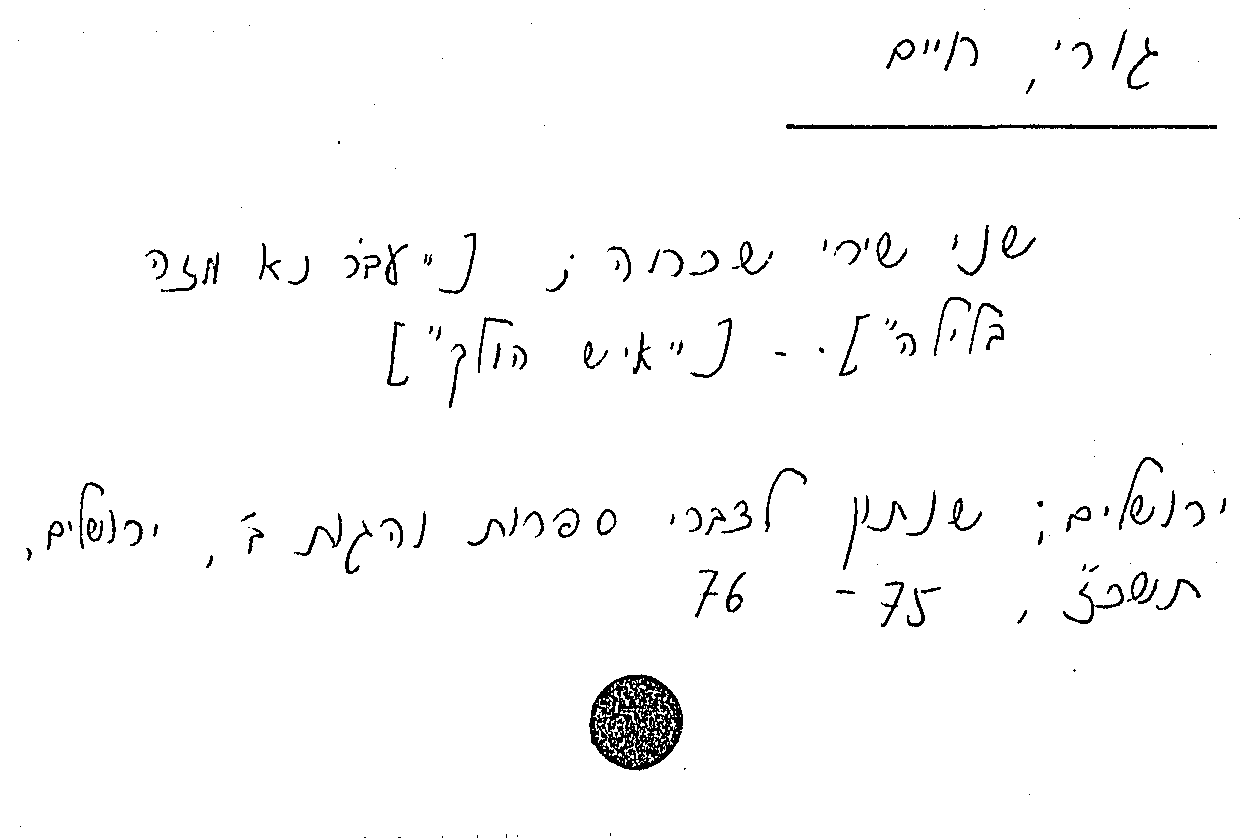 גורי, חיים
שני שירי שכרוה ; ["עבר נא מזה
בלילה"]. - ["איש הולך"]
ירושלים; שנתון לדברי ספרות והגות ב', ירושלים,
תשכ"ז, 75 - 76